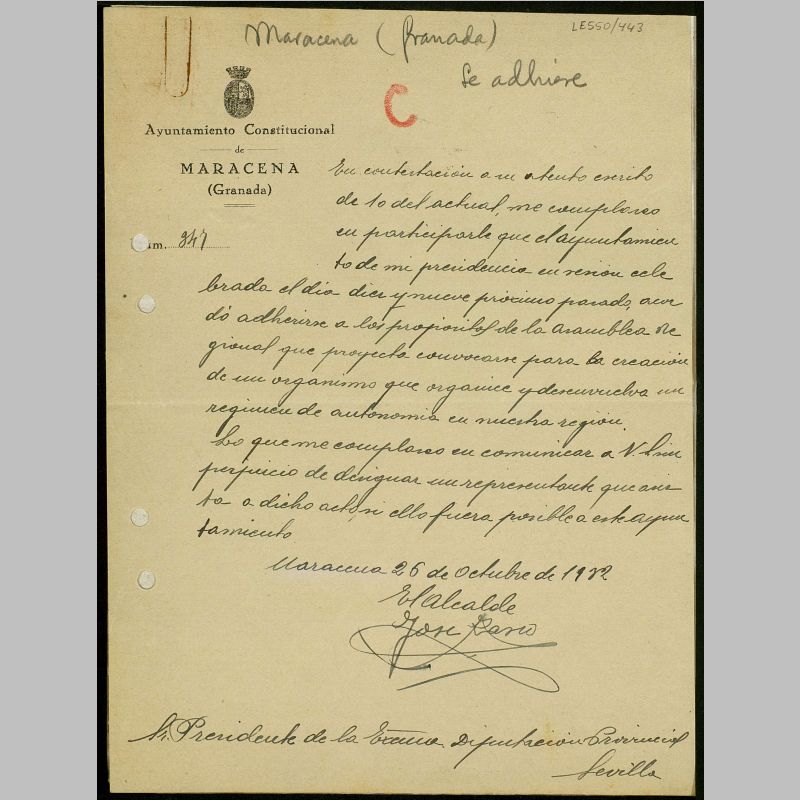 LE550/443
Maracena (Granada)
Se adhiere
C
Ayuntamiento Constitucional
de
MARACENA
(Granada)
úm. 947
En contestación a su atento escrito
de 10 del actual, me complazco
en participarle que el ayuntamien
to de mi presidencia en sesión cele
brada el día diez y nueve próximo pasado, acor
dó adherirse a los propósitos de la Asamblea Re
gional que proyecta convocarse para la creación
de un organismo que organice y desenvuelva un
regimen de autonomia en nuestra región.
Lo que me complazco en comunicar a V. sin
perjuicio de designar un representante que asis
ta a dicho acto, si ello fuera posible a este ayun
tamiento.
Maracena 26 de Octubre de 1932
El Alcalde
Jose
Sr. Presidente de la Excma Diputación Provincial
Sevilla